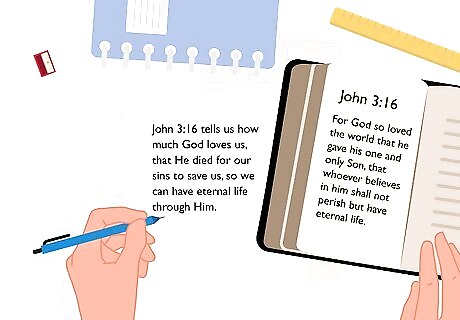 John 3:16 tells us how
much God loves us,
that He died for our
sins to save us, so we
can have eternal life
through Him.
John 3:16
For God so loved
the world that he
gave his one and
only Son, that
whoever believes
in him shall not
perish but have
eternal life.